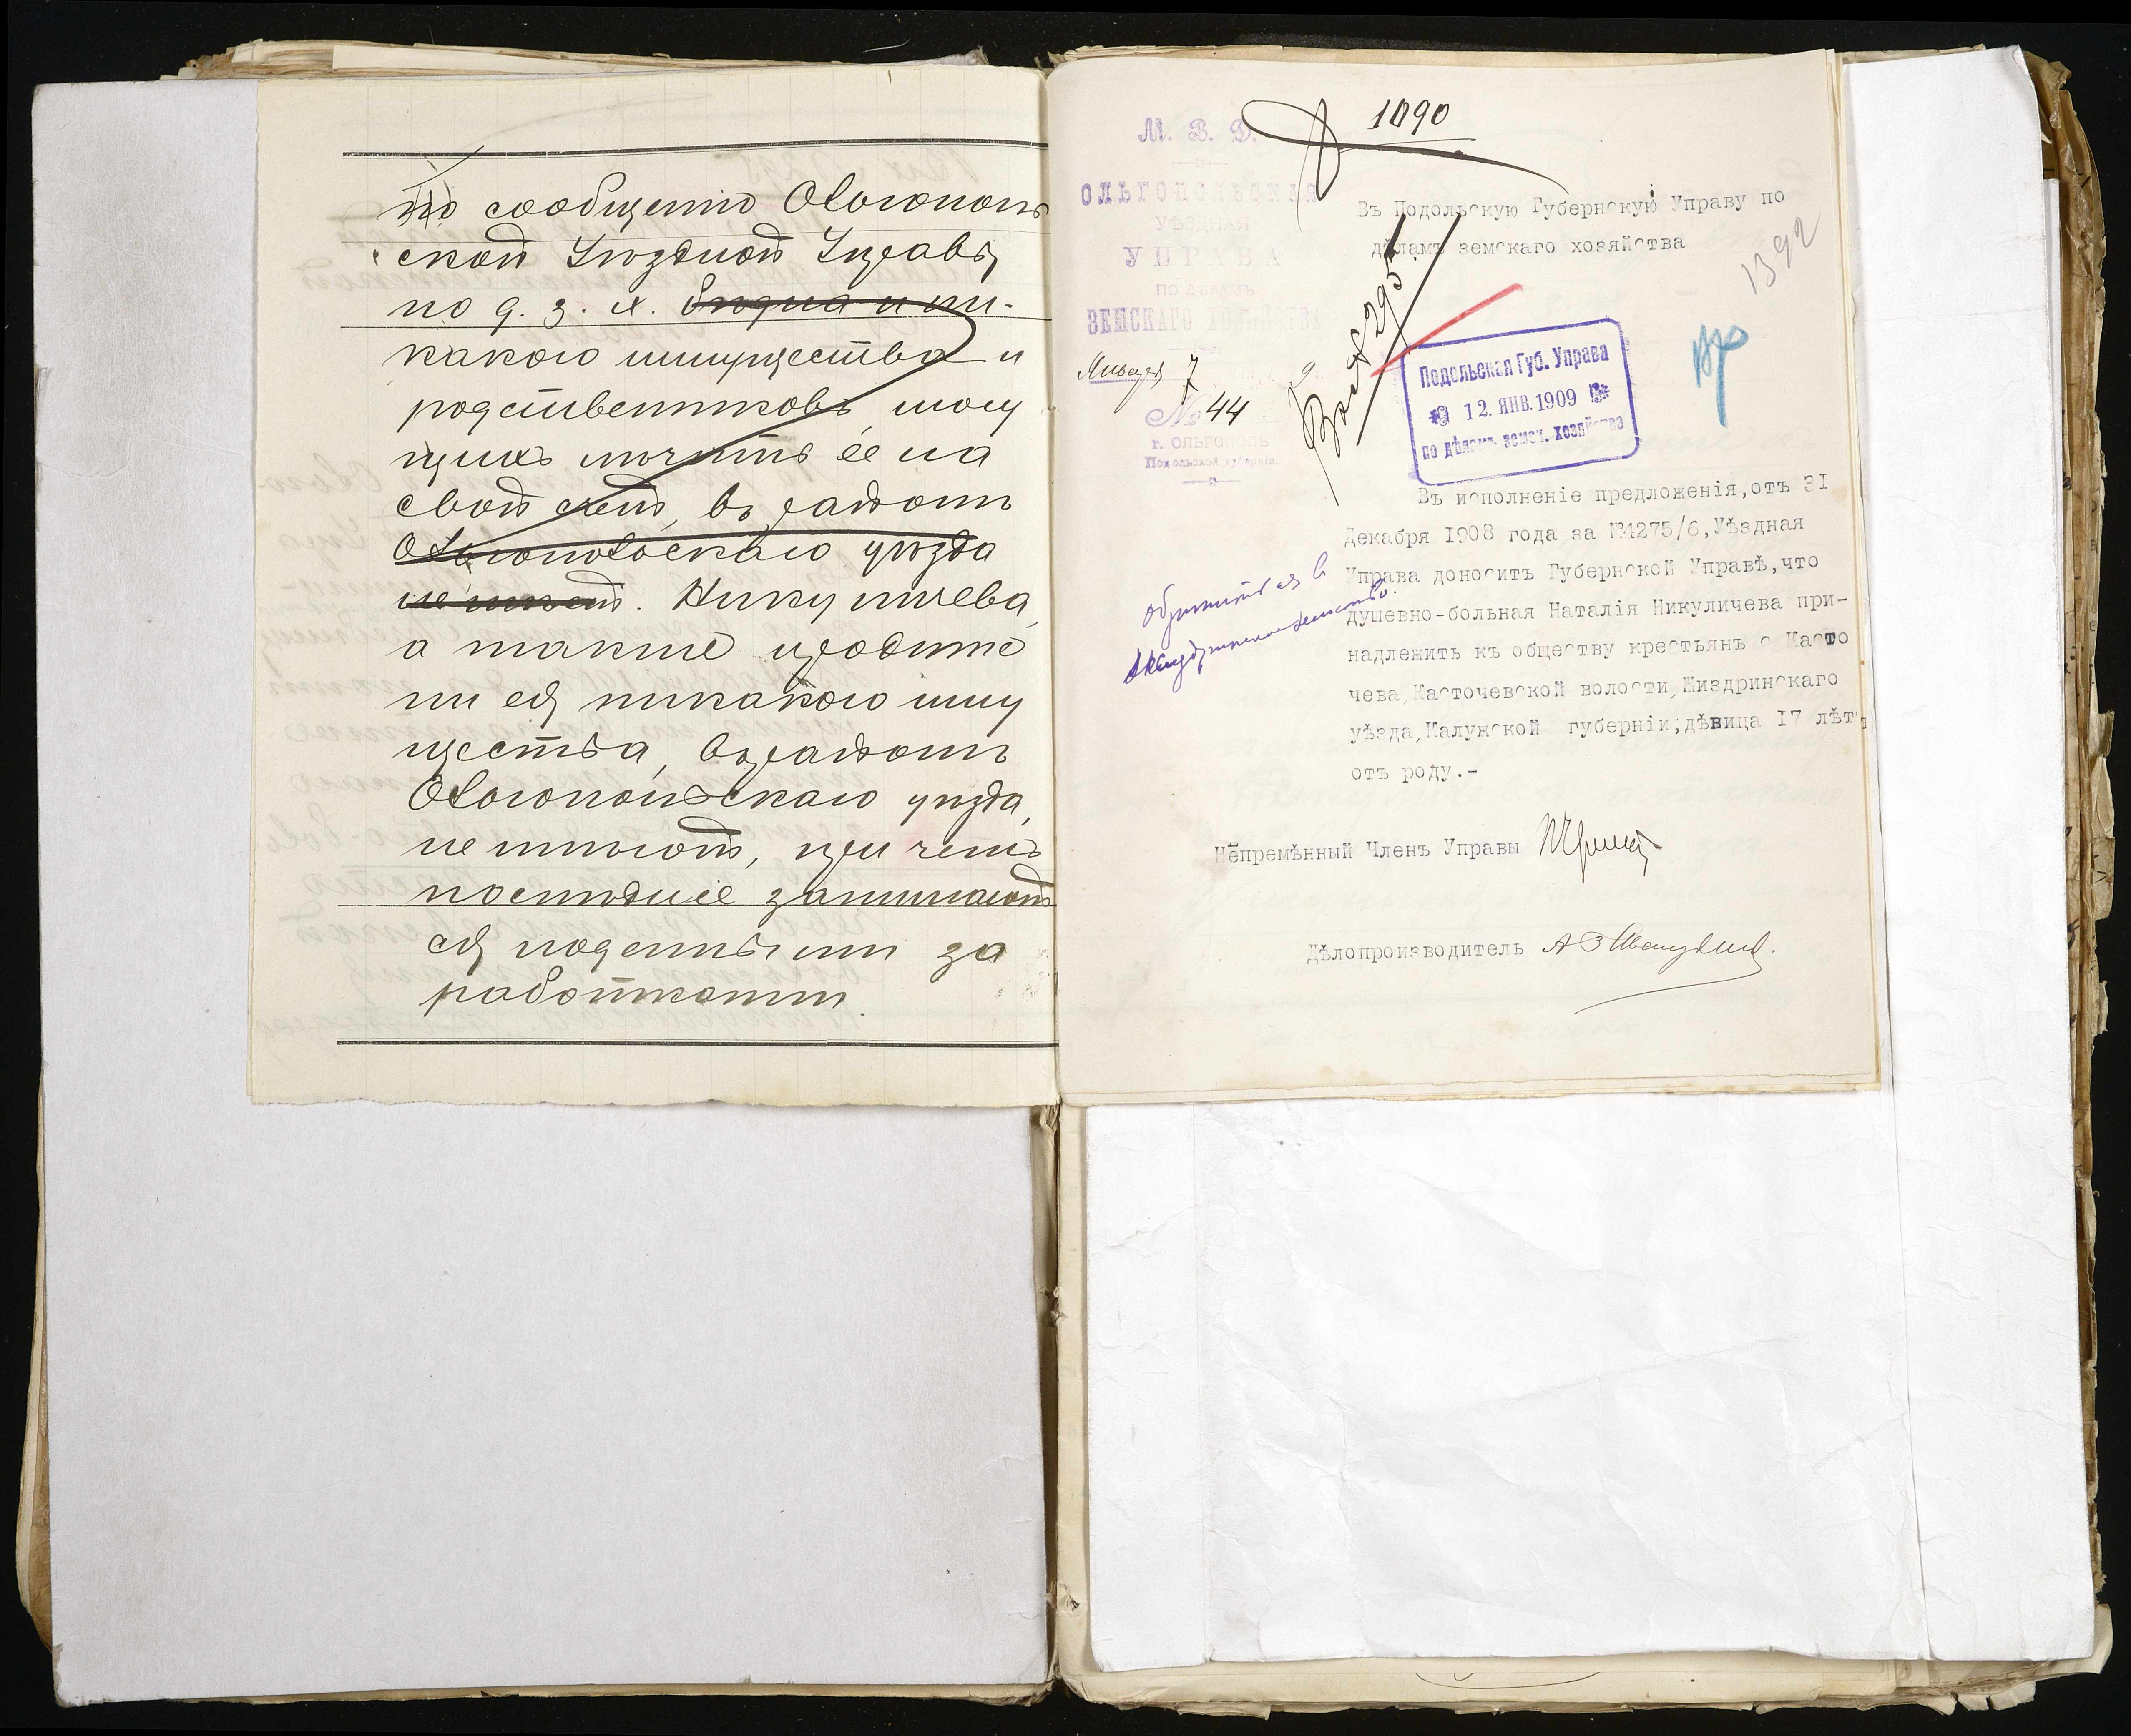 По сообщенію Ольгополь
ской Уѣздной Управы
по д. з. х. бѣдна и ни-
какого имущества и
родственниковъ, могу
щихъ лѣчить ее на
свой счетъ, въ районѣ
Ольгопольскаго уѣзда
не имѣетъ. Никуличева,
а также родите
ли ея никакого иму
щества, въ районѣ
Ольгопольскаго уѣзда,
не имѣютъ, при чемъ
послѣдніе занимают
ся поденными за
работками.
1090
М. В. Д.
ОЛЬГОПОЛЬСКАЯ
УѢЗДНАЯ
УПРАВА
ПО ДѢЛАМЪ
ЗЕМСКАГО ХОЗЯЙСТВА
Января 7 9
№ 44
г. ОЛЬГОПОЛЬ
Подольской губерніи.
Въ Подольскую Губернскую Управу по
дѣламъ земскаго хозяйства
1392
Вх № 295
Подольская Губ. Управа
12. ЯНВ. 1909
по дѣламъ земск. хозяйства
Въ исполненіе предложенія,отъ 31
Декабря 1908 года за №4275/6,Уѣздная
Управа доноситъ Губернской Управѣ,что
душевно-больная Наталія Никуличева при-
надлежить къ обществу крестьянъ с Касто
чева,Касточевской волости,Жиздринскаго
уѣзда,Калужской губерніи;дѣвица 17 лѣтъ
отъ роду.-
въ
Жиздринское земство.
Непремѣнный Членъ Управы
Дѣлопроизводитель